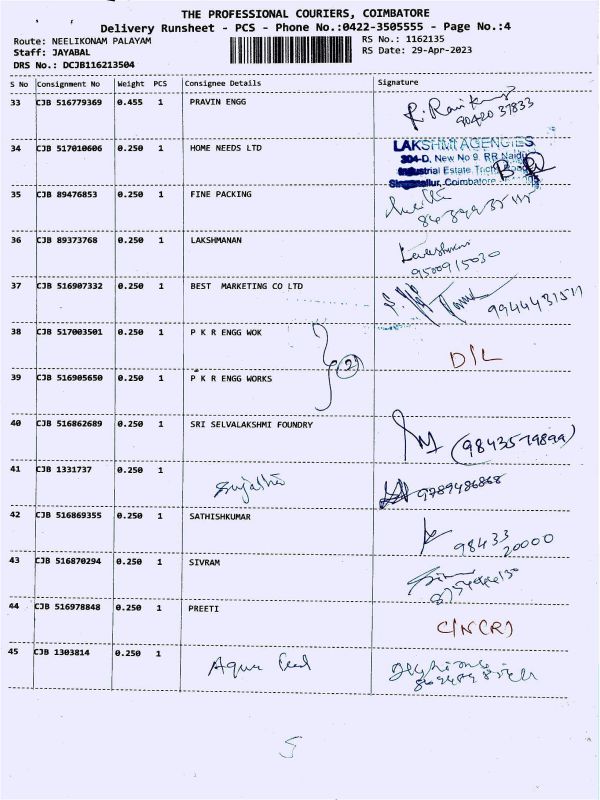 THE PROFESSIONAL COURIERS, COIMBATORE
Delivery Runsheet - PCS - Phone No.:0422-3505555 - Page No.:4
Route: NEELIKONAM PALAYAM RS No.: 1162135
Staff: JAYABAL RS Date: 29-Apr-2023
DRS No.: DCJB116213504
S No Consignment No Weight PCS Consignee Details Signature
33 CJB 516779369 0.455 1 PRAVIN ENGG
90420 37833
34 CJB 517010606 0.250 1 HOME NEEDS LTD
LAKSHMI AGENCIES
304-D, New No 9, RR Naidu
Industrial Estate, Trichy Road
Singanallur, Coimbatore
35 CJB 89476853 0.250 1 FINE PACKING
36 CJB 89373768 0.250 1 LAKSHMANAN
Lakshmanan
9500915030
37 CJB 516907332 0.250 1 BEST MARKETING CO LTD
9944431511
38 CJB 517003501 0.250 1 P K R ENGG WOK
2 D/L
39 CJB 516905650 0.250 1 P K R ENGG WORKS
40 CJB 516862689 0.250 1 SRI SELVALAKSHMI FOUNDRY
(9843579899)
41 CJB 1331737 0.250 1
Sujatha 9789486868
42 CJB 516869355 0.250 1 SATHISHKUMAR
98433
20000
43 CJB 516870294 0.250 1 SIVRAM
44 CJB 516978848 0.250 1 PREETI
C/N(R)
45 CJB 1303814 0.250 1
Aqua
5